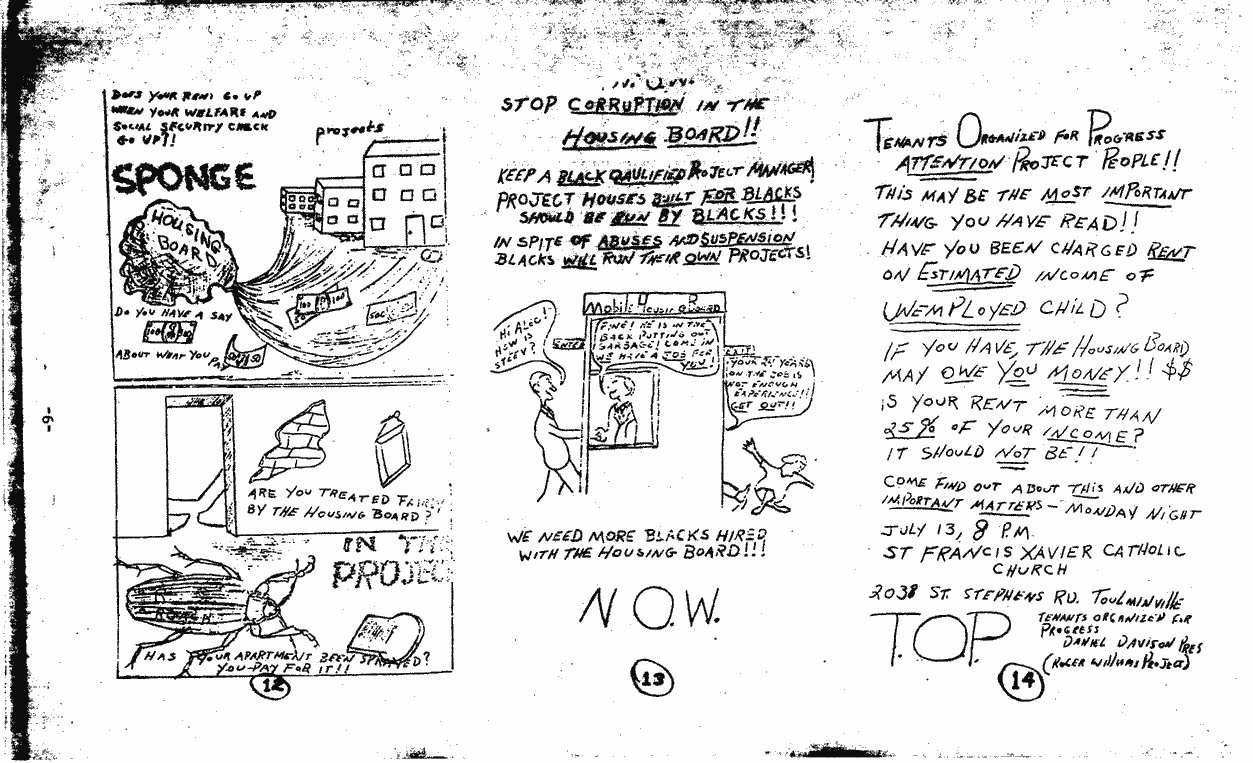 DOES YOUR RENT GO UP
WHEN YOUR WELFARE AND
SOCIAL SECURITY CHECK
GO UP?!
projects
SPONGE
HOUSING
BOARD
DO YOU HAVE A SAY
100
100
SOC
ABOUT WHAT YOU
PAY
ARE YOU TREATED FAIRLY
BY THE HOUSING BOARD?
IN THE
PROJEC
ROACH
HAS YOUR APARTMENT BEEN SPRAYED?
YOU PAY FOR IT!!
12
-9-
N.O.W.
STOP CORRUPTION IN THE
HOUSING BOARD!!
KEEP A BLACK QAULIFIED PROJECT MANAGER!
PROJECT HOUSES BUILT FOR BLACKS
SHOULD BE RUN BY BLACKS!!!
IN SPITE OF ABUSES AND SUSPENSION
BLACKS WILL RUN THEIR OWN PROJECTS!
Mobile Housing Board
HI ALEC!
HOW IS
STEEV?
ENTER
FINE! HE IS IN THE
BACK PUTTING OUT
GARBAGE! COME IN
WE HAVE A JOB FOR
YOU!
EXIT
YEARS
ON THE JOB IS
NOT ENOUGH
EXPERIENCE!!
GET OUT!!
WE NEED MORE BLACKS HIRED
WITH THE HOUSING BOARD!!!
N.O.W.
13
TENANTS ORGANIZED FOR PROGRESS
ATTENTION PROJECT PEOPLE!!
THIS MAY BE THE MOST IMPORTANT
THING YOU HAVE READ!!
HAVE YOU BEEN CHARGED RENT
ON ESTIMATED INCOME OF
UNEMPLOYED CHILD?
IF YOU HAVE, THE HOUSING BOARD
MAY OWE YOU MONEY!! $$
IS YOUR RENT MORE THAN
25% OF YOUR INCOME?
IT SHOULD NOT BE!!
COME FIND OUT ABOUT THIS AND OTHER
IMPORTANT MATTERS - MONDAY NIGHT
JULY 13, 8 P.M.
ST FRANCIS XAVIER CATHOLIC
CHURCH
2038 ST. STEPHENS RD. TOULMINVILLE
T.O.P.
TENANTS ORGANIZED FOR
PROGRESS
DANIEL DAVISON PRES
(ROGER WILLIAMS PROJECT)
14